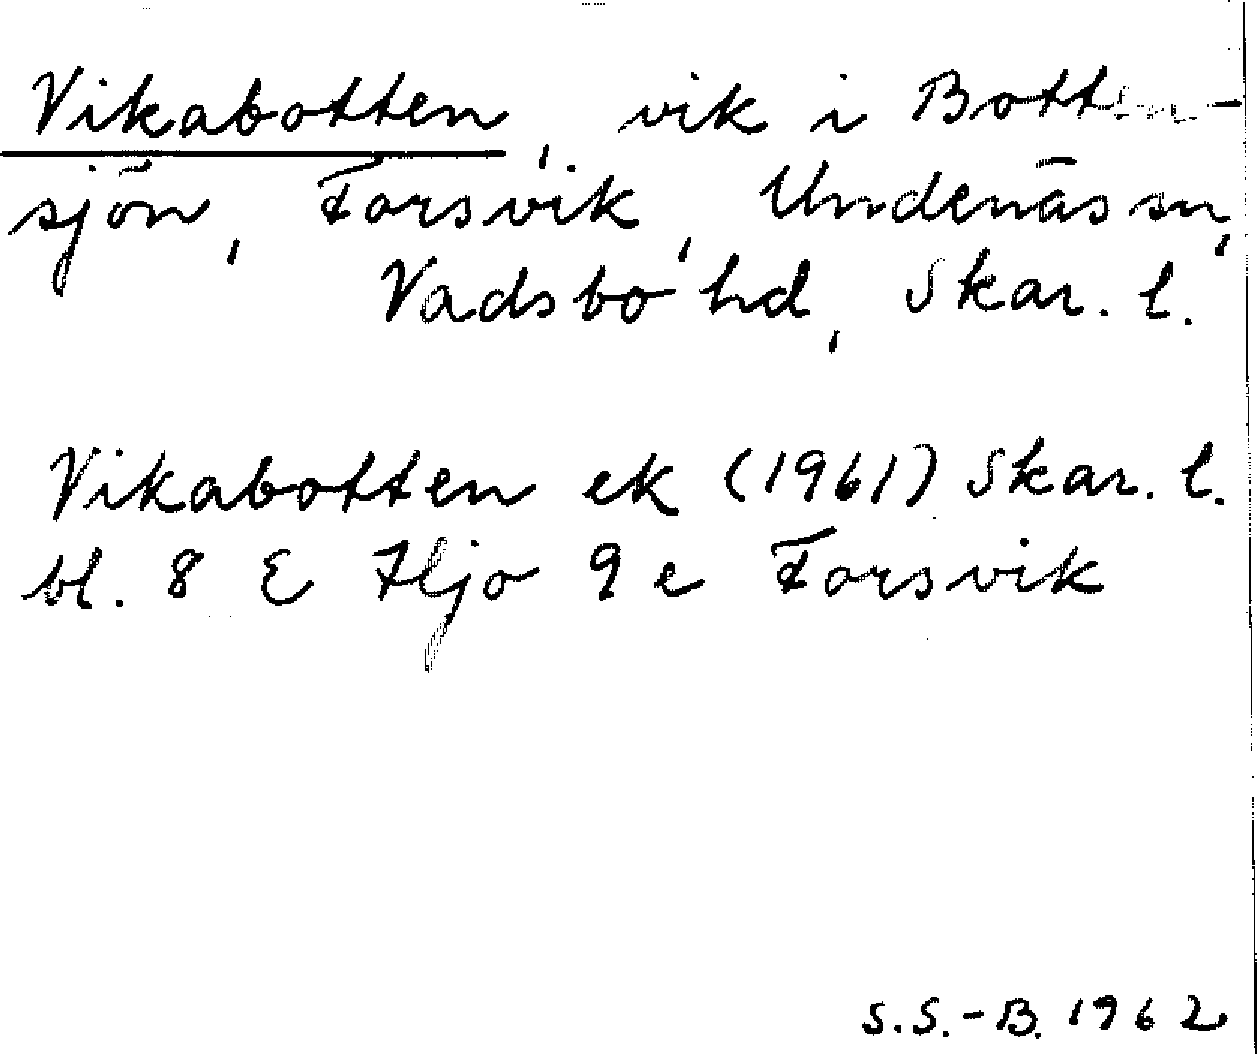 Vikabotten, vik i Botten-
sjön, Forsvik, Undenäs sn,
Vadsbo hd, Skar. l.
Vikabotten ek (1961) Skar. l.
bl. 8 E Hjo 9 e Forsvik
S.S.-B. 1962